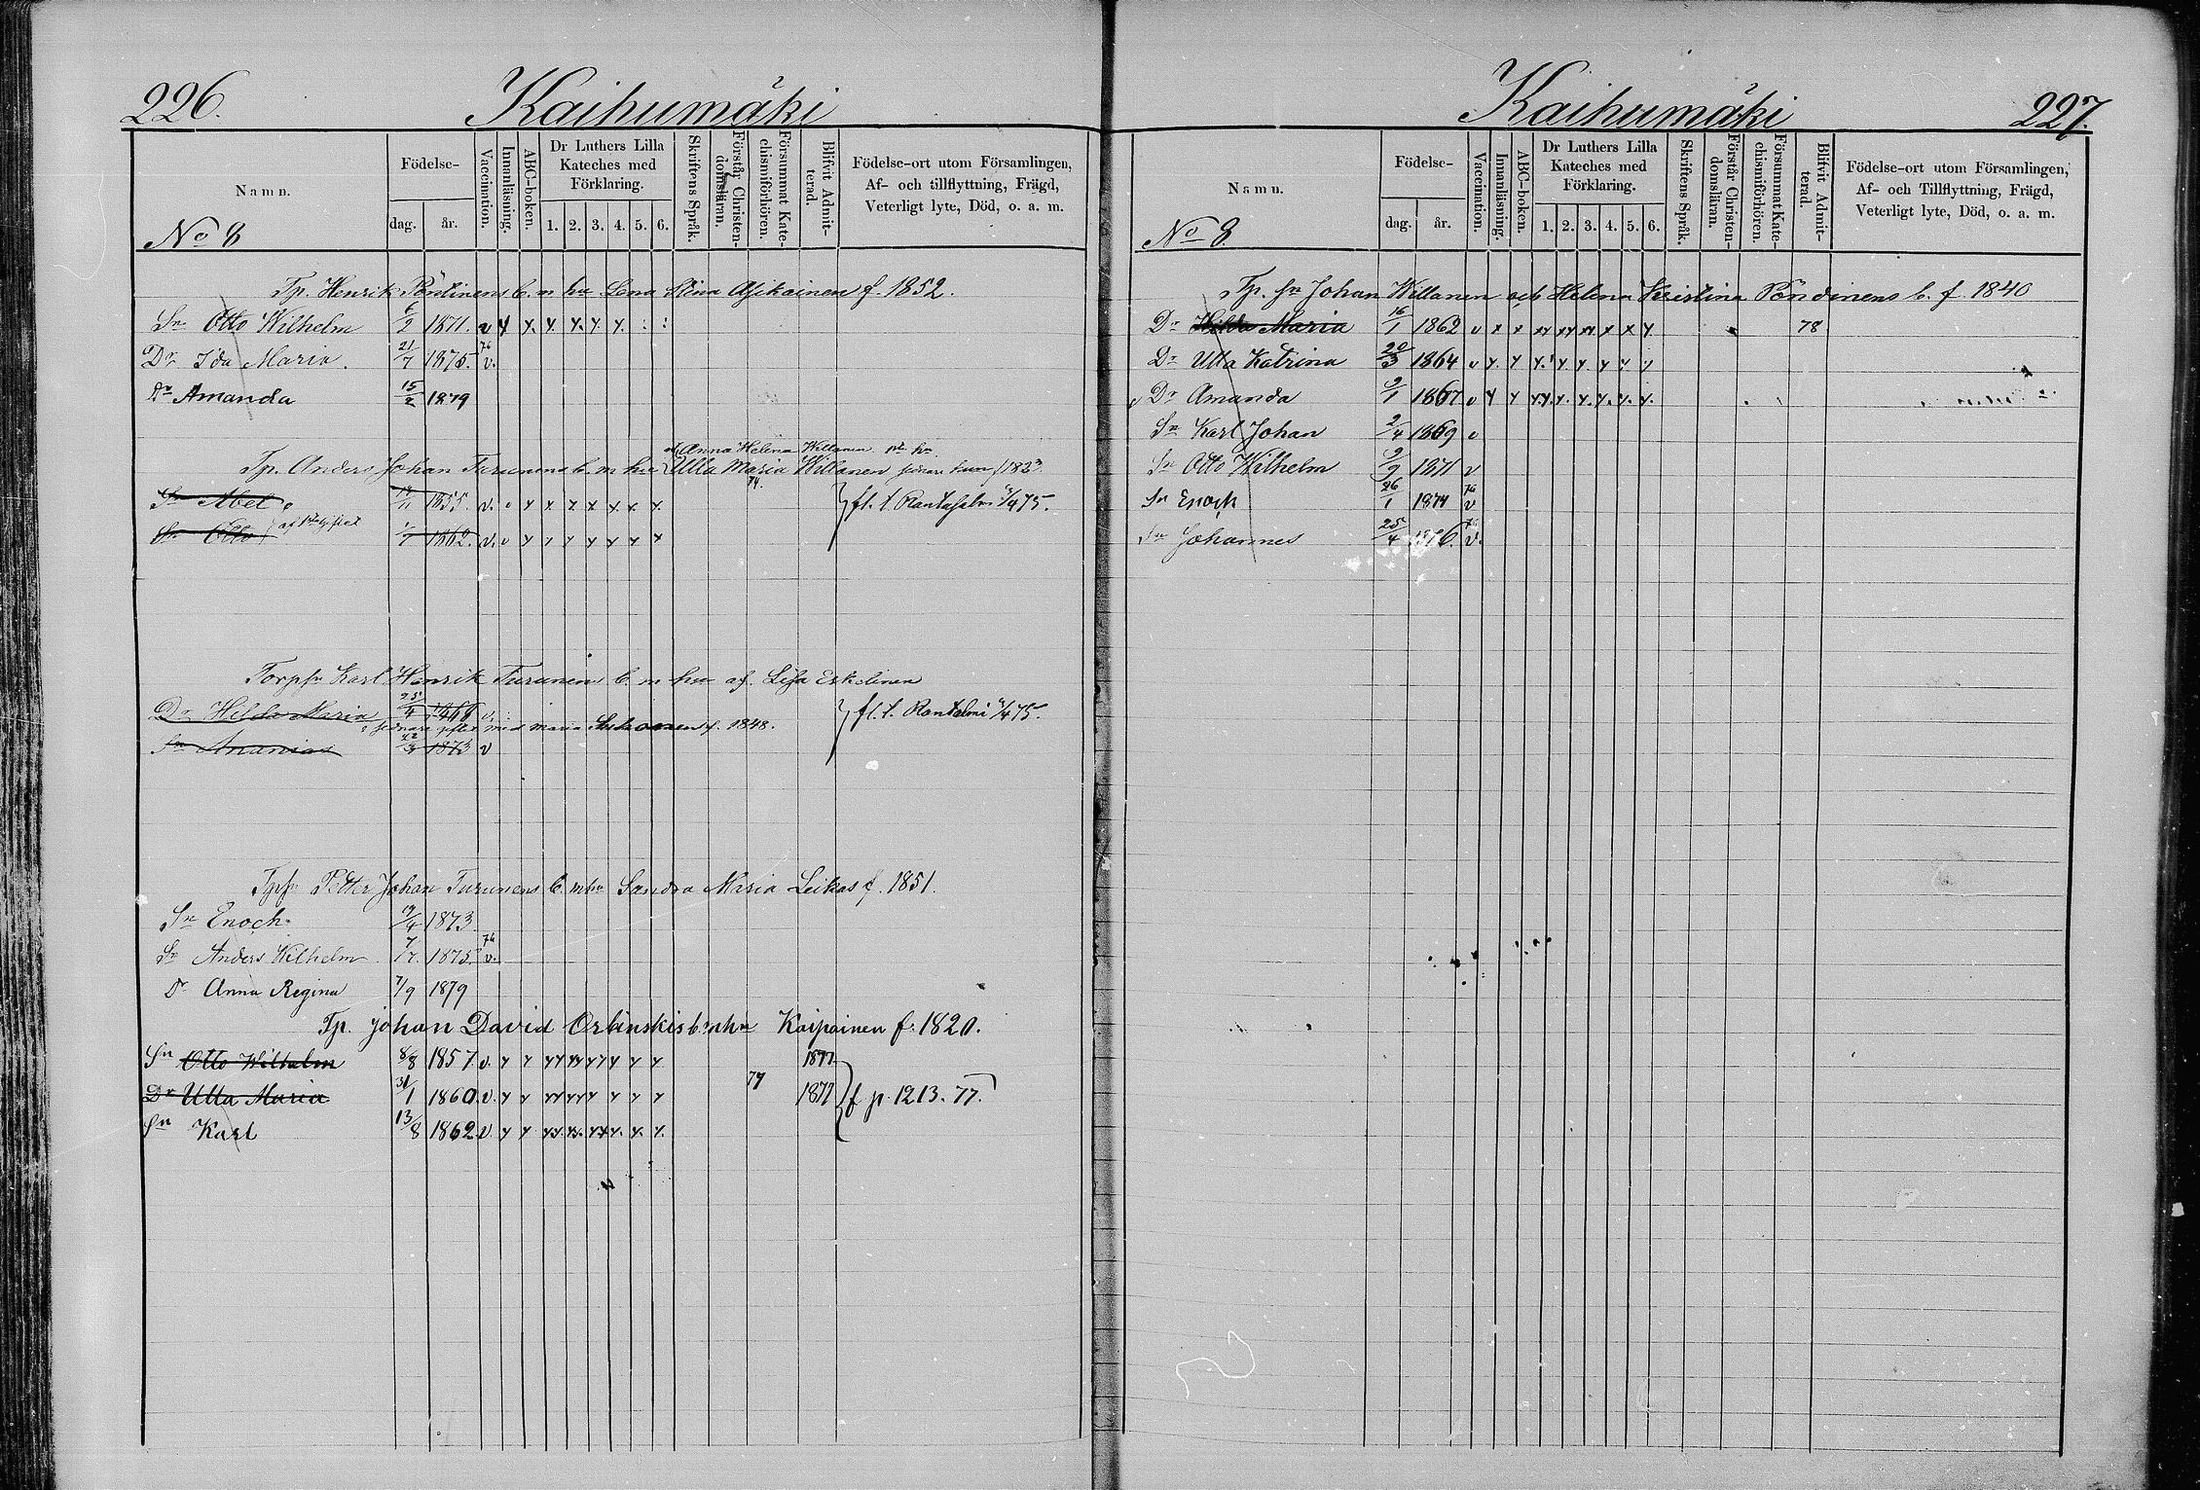 226. Kaihumäki
Namn. Födelse- Vaccination. Innanläsning. ABC-boken. Dr Luthers Lilla Kateches med Förklaring. Skriftens Språk. Förstår Christendomsläran. Försummat Katechismiförhören. Blifvit Admitterad. Födelse-ort utom Församlingen, Af- och tillflyttning, Frägd, Veterligt lyte, Död, o. a. m.
dag. år. 1. 2. 3. 4. 5. 6.
No 8
Tp. Henrik Pöntinens b. m hu Lena Stina f. 1852.
Sn Otto Wilhelm 6/2 1871. v y y. y. y. y. y. : :
Dr Ida Maria. 21/7 1875. 76 v.
Dr Amanda 15/2 1879
Anna Helena Willanen
Tp. Anders Johan Turunens b. m hu Ulla Maria Willanen
74.
Sn Abel 1855. v.
fl. t. Rantasalmi 75.
Sn Otto 1862. v.
Torpsn Karl Henrik Turunens b. m hu af. Lisa Eskelinen
Dr Hilda Maria 25/4 1868 v.
fl. t. Rantalmi 75.
gift med Maria f. 1848.
Sn Ananias 1873 v
Petter Johan Turunens b. m hu Sandra Maria Leikas f. 1851.
Sn Enoch. 19/4 1873.
Sn Anders Wilhelm 7/7. 1875. 76 v.
Dr Anna Regina 7/9 1879
Tp. Johan David Orbinskis b. m hu Kaipainen f. 1820.
Sn Otto Wilhelm 8/8 1857. v. y y yy yy yy y y y 1877
Dr Ulla Maria 31/1 1860. v. y y yy yy y y y y 77 1877
f p. 1213. 77.
Sn Karl 13/8 1862 v. y y yy. yy. yy y. y. y.
Kaihumäki 227.
Namn. Födelse- Vaccination. Innanläsning. ABC-boken. Dr Luthers Lilla Kateches med Förklaring. Skriftens Språk. Förstår Christendomsläran. Försummat Katechismiförhören. Blifvit Admitterad. Födelse-ort utom Församlingen, Af- och Tillflyttning, Frägd, Veterligt lyte, Död, o. a. m.
dag. år. 1. 2. 3. 4. 5. 6.
No 8
Tp. sn Johan Willanen och Helena Kristina Pöndinens b. f. 1840
Dr Hilda Maria 16/1 1862 v x x xy xy xy x x y. 78
Dr Ulla Katrina 20/3 1864 v y. y y. y y. y y y
Dr Amanda 9/1 1867 v y y yy. y. y. y. y. y.
Sn Karl Johan 2/4 1869 v
Sn Otto Wilhelm 9/9 1871 v
Sn Enoch 26/1 1874 76 v
Sn Johannes 25/4 1876. v.